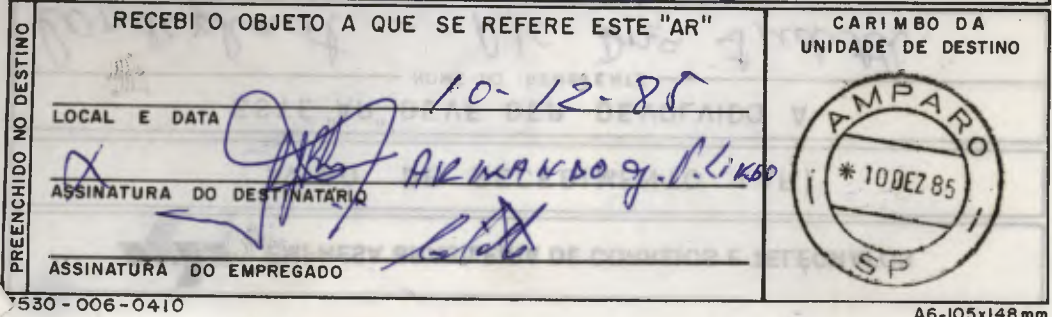 PREENCHIDO NO DESTINO
RECEBI O OBJETO A QUE SE REFERE ESTE "AR"
10-12-85
LOCAL E DATA
ARMANDO
ASSINATURA DO DESTINATÁRIO
ASSINATURA DO EMPREGADO
CARIMBO DA
UNIDADE DE DESTINO
AMPARO
* 10 DEZ 85
SP
7530-006-0410
A6-105x148mm